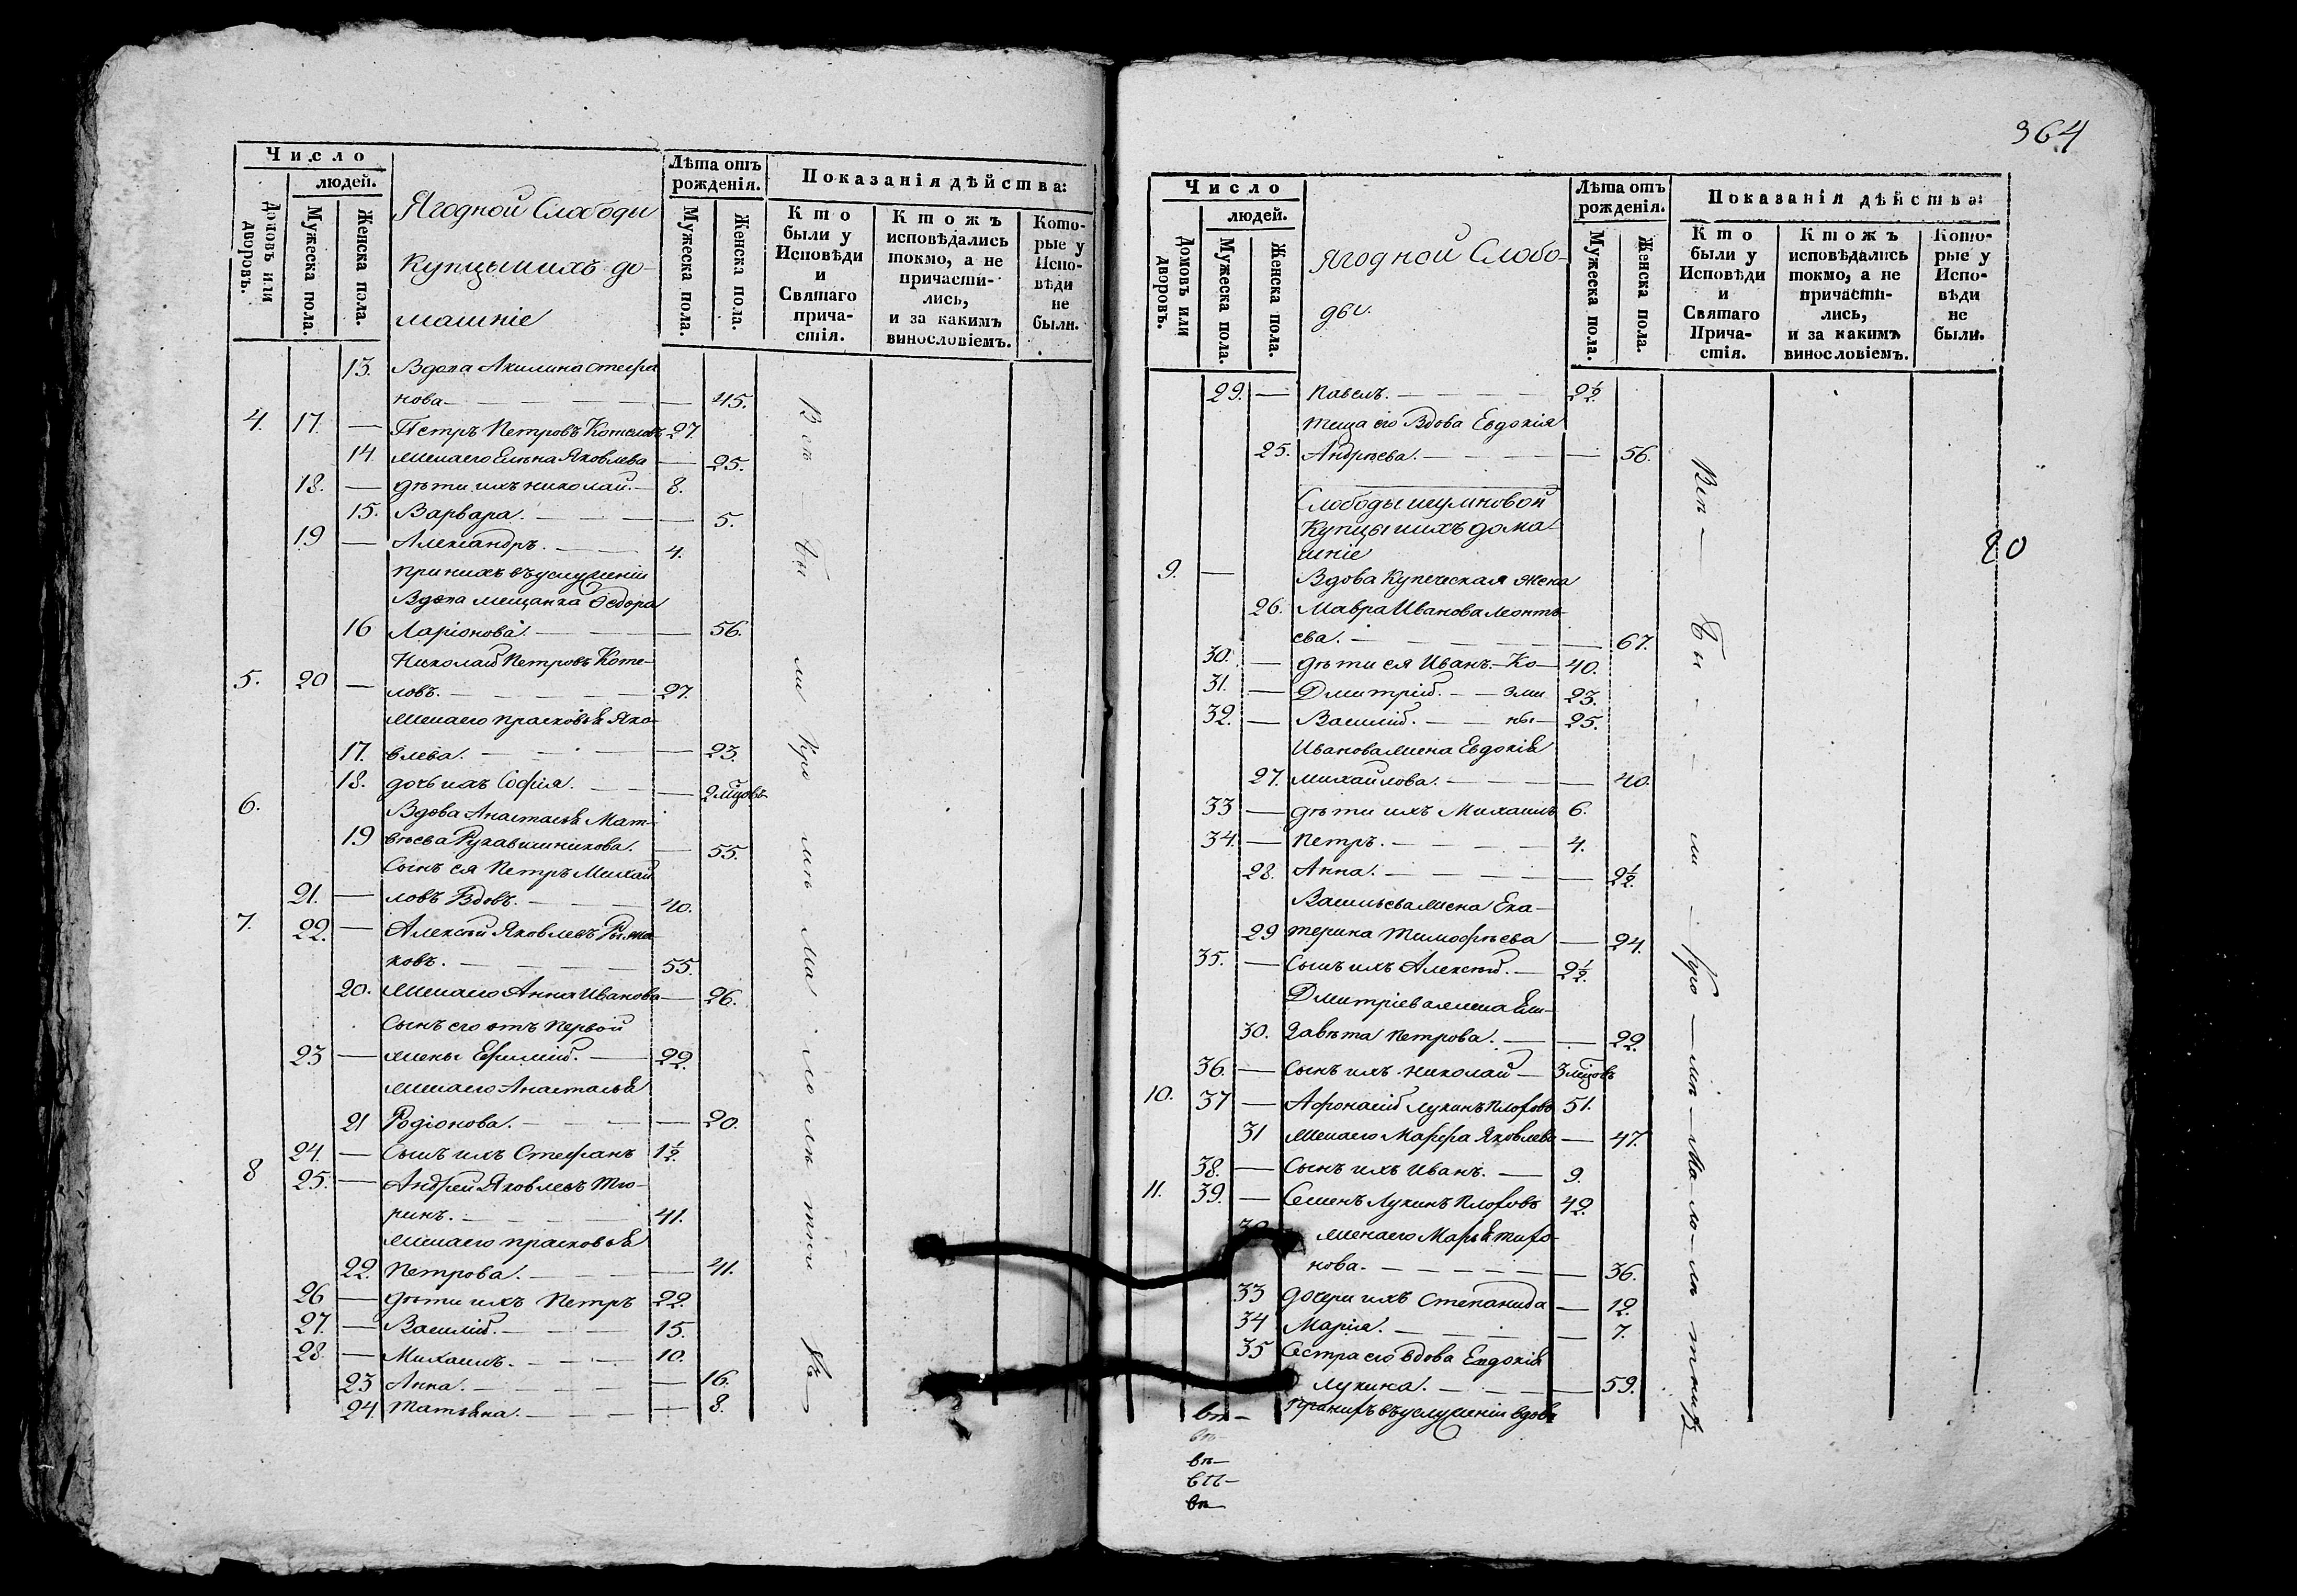 Число
людей.
Домовъ или дворовъ.
Мужеска пола.
Женска пола.
Ягодной Слободы
купцы ихъ до-
машніе
Лѣта отъ
рожденія.
Мужеска пола.
Женска пола.
Показанія дѣйства:
Кто
были у
Исповѣди
и
Святаго
прича-
стія.
Ктожъ
исповѣдались
токмо, а не
причасти-
лись,
и за какимъ
винословіемъ.
Кото-
рые у
Испо-
вѣди
не
были.
13. Вдова Акилина Стефа
нова — 45.
4. 17. — Петръ Петровъ Котеловъ 27.
14. Жена его Елена Яковлева — 25.
18. — дѣти ихъ Николай. — 8.
15. Варвара. — 5.
19 — Александръ. — 4.
при нихъ въ услуженіи
Вдова мещанка Ѳедора
16 Ларіонова. — 56.
Николай Петровъ Коте-
5. 20 — ловъ. — 27.
Жена его Прасковья Яко-
17. влева. — 23.
18. дочь ихъ Софія. — 2 мѣсцовъ
6. Вдова Анастасья Мат-
19 вѣева Рукавишникова. — 55.
Сынъ ея Петръ Михай
21. — ловъ Вдовъ. — 40.
7. 22. — Алексѣй Яковлевъ Рыжа
ковъ. — 55.
20. Жена его Анна Иванова — 26.
Сынъ его отъ первой
23 — жены Ефимій. — 22.
Жена его Анастасья
21 Родіонова. — 20.
24. — Сынъ ихъ Стефанъ 1½.
8 25. — Андрей Яковлевъ Тю-
ринъ. — 41.
Жена его Прасковья
22. Петрова. — 41.
26 — дѣти ихъ Петръ 22.
27. — Василій. — 15.
28. — Михаилъ. — 10.
23 Анна. — 16.
24. Татьяна. — 8.
364
Число
людей.
Домовъ или дворовъ.
Мужеска пола.
Женска пола.
Ягодной Слобо-
ды.
Лѣта отъ
рожденія.
Мужеска пола.
Женска пола.
Показанія дѣйства:
Кто
были у
Исповѣди
и
Святаго
Прича-
стія.
Ктожъ
исповѣдались
токмо, а не
причасти-
лись,
и за какимъ
винословіемъ.
Кото-
рые у
Испо-
вѣди
не
были.
29. — Павелъ. — 2½
теща его Вдова Евдокія
25. Андрѣева. — 56.
Слободы игумновой
Купцы ихъ дома-
шніе
9. — Вдова Купеческая жена
26. Мавра Иванова Леонть-
ева. — 67.
30. — дѣти ея Иванъ. — Ко — 40.
31. — Дмитрій. — зми 23.
32. — Василій. — ны — 25.
Иванова жена Евдокія
27. Михайлова. — 40.
33 — дѣти ихъ Михаилъ 6.
34. — Петръ. — 4.
28. Анна. — 2½.
Васильева жена Ека-
29 терина Тимофѣева — 24.
35. — Сынъ ихъ Алексѣй. — 2½.
Дмитріева жена Ели-
30. завѣта Петрова. — 22.
36. — Сынъ ихъ Николай — 3 мѣсцовъ
10. 37 — Афонасій Лукинъ Плоховъ 51.
31 Жена его Марфа Яковлева — 47.
38. — Сынъ ихъ Иванъ. — 9.
11. 39. — Семенъ Лукинъ Плоховъ 42.
32 жена его Марья тихо-
нова. — 36.
33 дочери ихъ Степанида — 12.
34 Марія. — 7.
35 Сестра его вдова Евдокія
Лукина. — 59.
при нихъ въ услуженіи вдова
Всѣ — бы — ли — кро — мѣ — ма — ло — лѣ — тнихъ
20